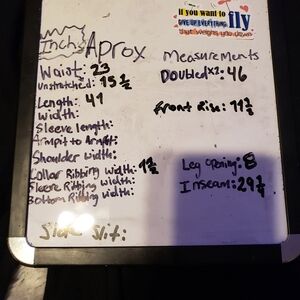 if you want to fly
GIVE UP EVERYTHING
that weighs you down
Inches Aprox Measurements
Waist: 23
Unstretched: 15 1/2 Doubled x2: 46
Length: 41
Width: Front Rise: 11 1/2
Sleeve length:
Armpit to Armpit:
Shoulder Width:
Collar Ribbing Width: 1 1/2 Leg Opening: 8
Sleeve Ribbing Width: Inseam: 29 1/2
Bottom Ribbing Width:
Side Slit: